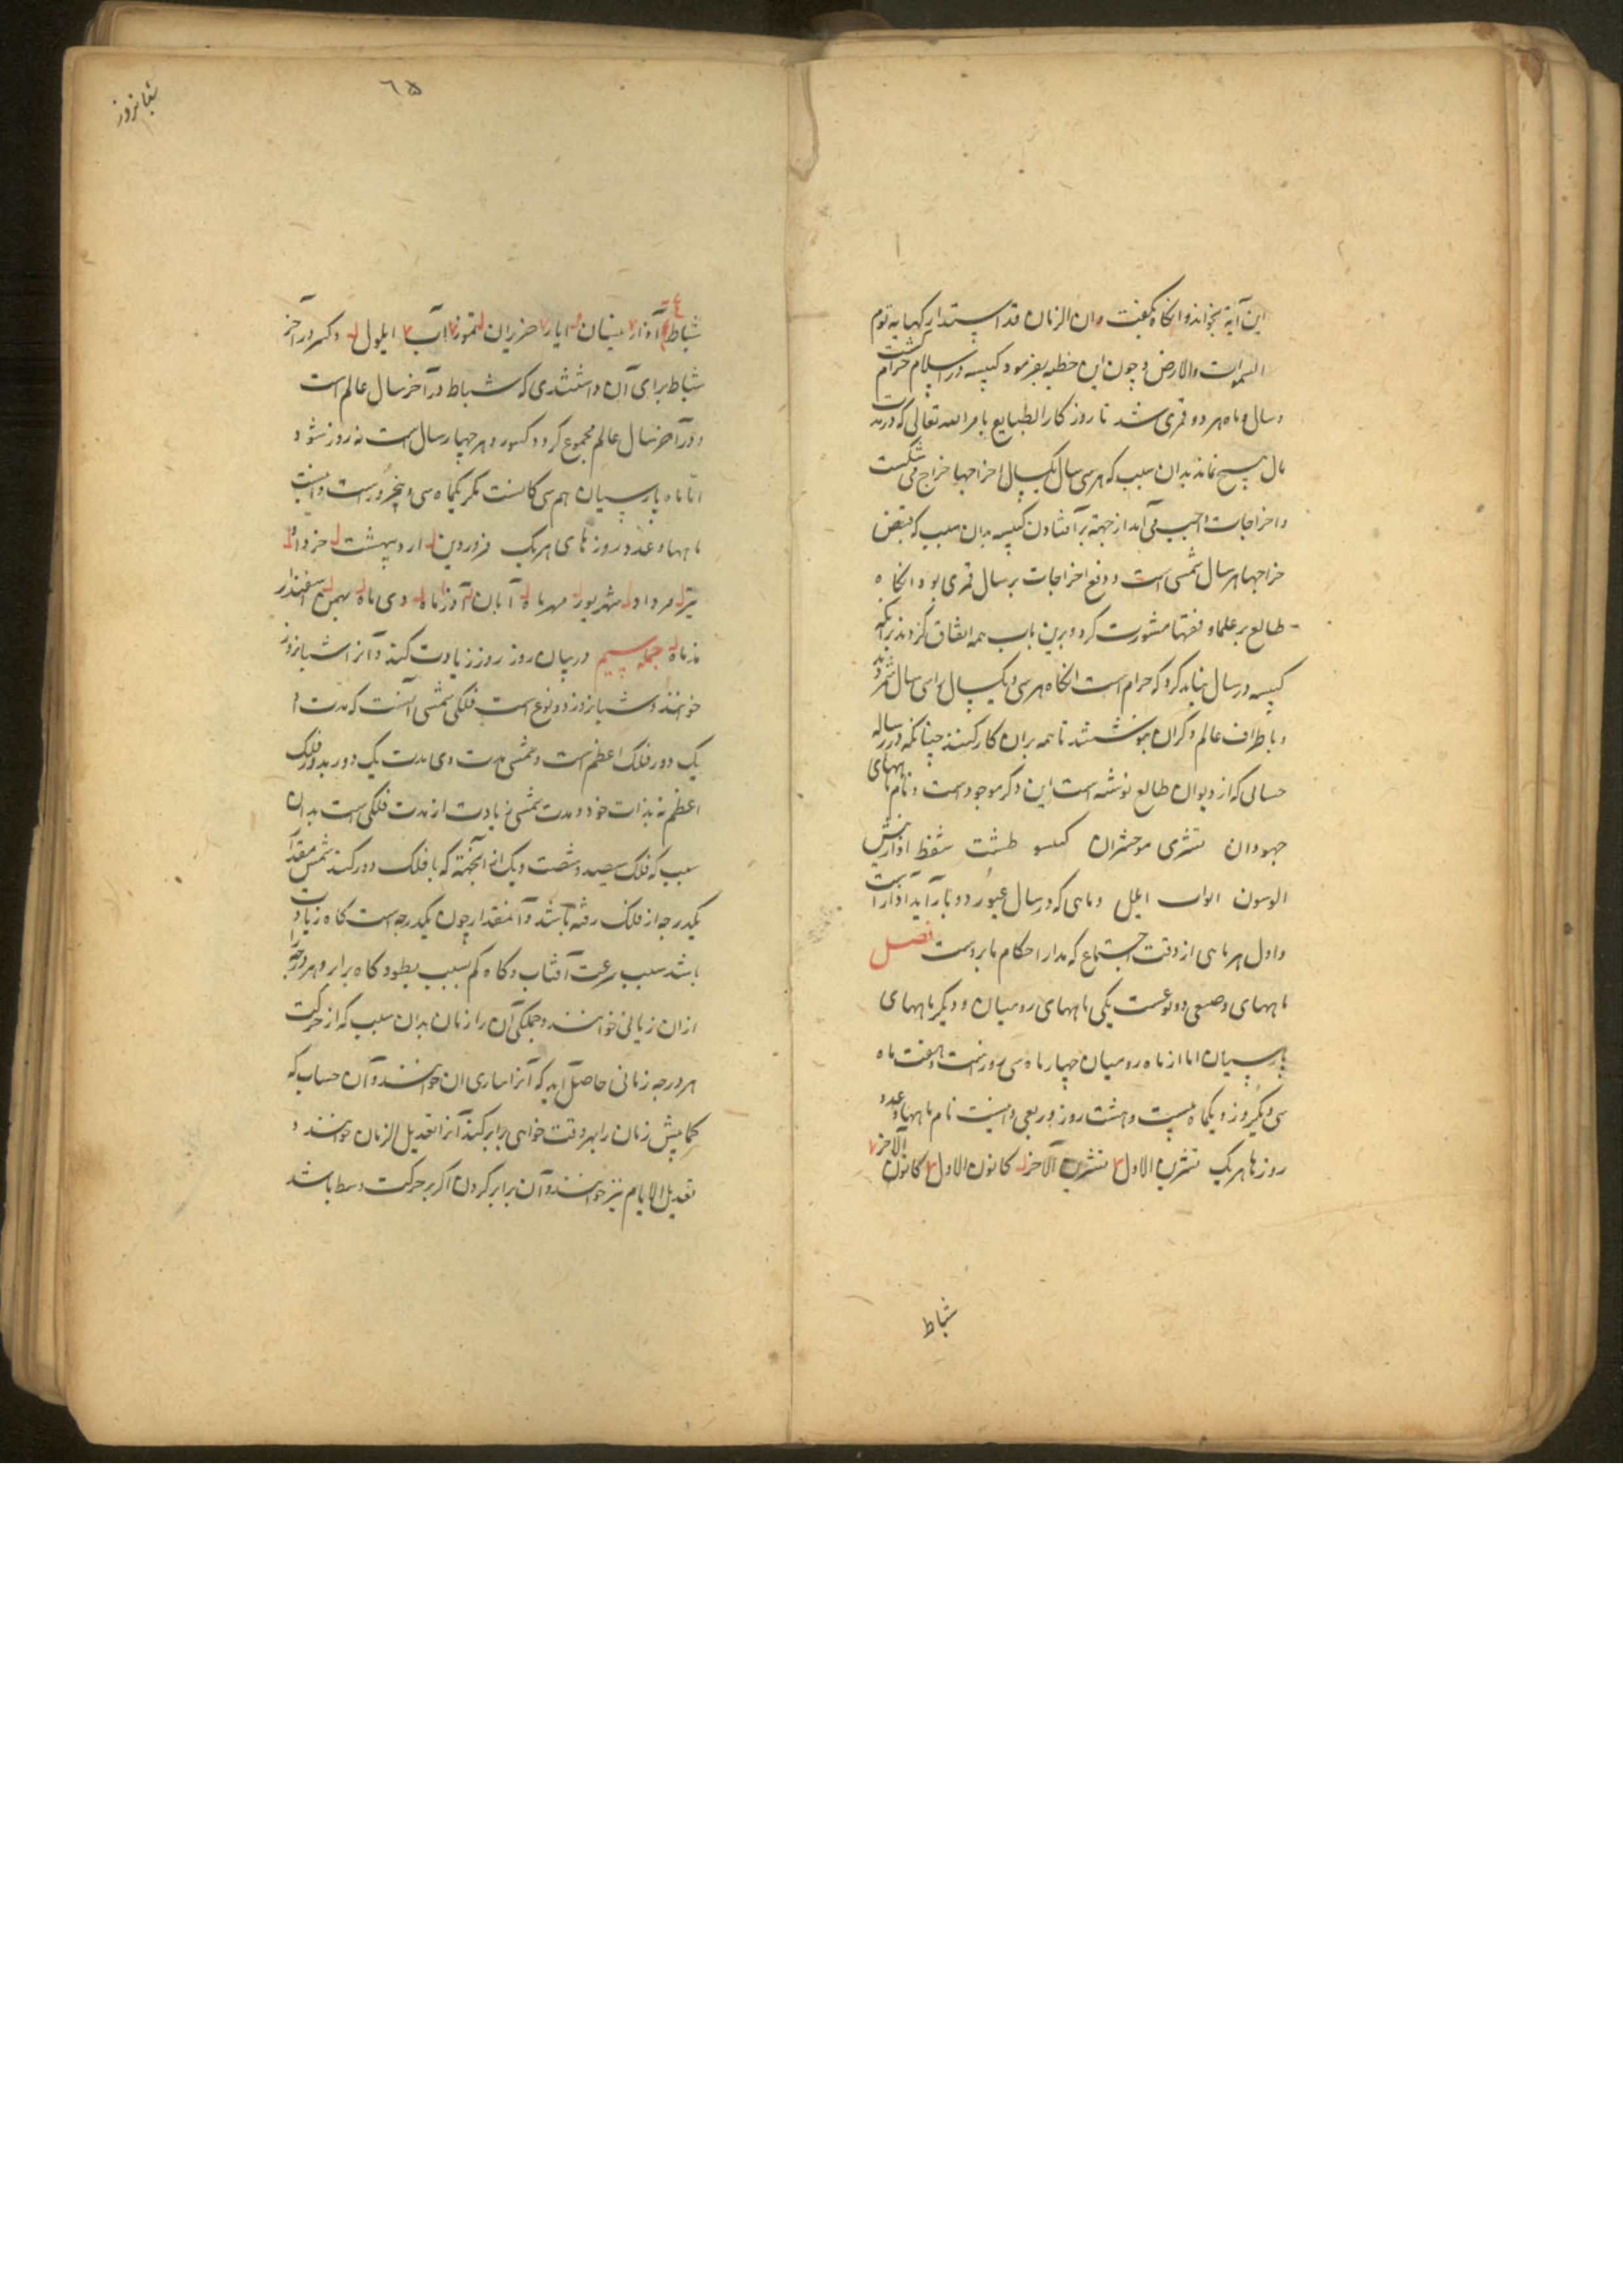 این آیة بخواند و انکاه بکفت و ان الزمان قد استدار کهیاته یوم
السموات والارض و چون این خطبه بفرمود کبیسه در اسلام حرام کشت
و سال و ماه هر دو قمری شد تا روزکار الطایع بامر الله تعالی که در بیت
مال هیچ نماند بدان سبب که هر سی سال یک سال اخراجها خراج می شکست
و اخراجات واجب می آمد از جهة بر افتادن کبیسه بدان سبب که قبض
خراجها بر سال شمسی است و دفع اخراجات بر سال قمری بود انکاه
طایع بر علما و فقها مشورت کرد و برین باب همه اتفاق کردند بر آنکه
کبیسه در سال نباید کرد که حرام است انکاه هر سی و یک سال براسی سال شمردند
و باطراف عالم ذکر آن بنوشتند تا همه بران کار کنند چنانکه در رساله
حسابی که از دیوان طایع نوشته است این ذکر موجودست و نام ماههای
جهودان تشری مرحشوان کسلو طبث شفط اذار نیسن
السیون اواب ایلل و ماهی که در سال عبور دو بار آید آذار است
و اول هر ماهی از وقت اجتماع که مدار احکام ما بروست فصل
ماههای وضعی دو نوعست یکی ماههای رومیان و دیکر ماههای
پارسیان اما از ماه رومیان چهار ماه سی روزست و هفت ماه
سی و یکروز و یکماه بیست و هشت روز و ربعی و اینست نام ماهها و عدد
روزها هر یک تشرین الاول لا تشرین الآخر ل کانون الاول لا کانون الآخر لا
شباط
٦٥
شبانروز
شباط آذار لا نیسان ل ایار لا حزیران ل تموز لا آب لا ایلول ل و کسر در آخر
شباط برای آن داشتندی که شباط در آخر سال عالم است
و در آخر سال عالم مجموع کردد کسور و هر چهار سال است نه روز شود
اما ماه پارسیان هم سی کانست مکر یکماه سی و پنج روزست و اینست
ماهها و عدد روزهای هر یک فروردین ل اردیبهشت ل خرداد ل
تیر ل مرداد ل شهریور ل مهرماه ل آبان ل آذرماه ل دی ماه ل بهمن ل اسفندار
مذماه ل جمله سیم در بیان روز روز زیادت کنند و آنرا شبانروز
خوانند و شبانروز دو نوع است فلکی شمسی آنست که مدت او
یک دور فلک اعظم است و شمسی مدت وی مدت یک دور بدور فلک
اعظم نه بذات خود و مدت شمسی زیادت از مدت فلکی است بدان
سبب که فلک سیصد و شصت و یک از آنجهة که با فلک دور کند شمس مقدار
یکدرجه از فلک رفته باشد و آنمقدار چون یکدرجه است کاه زیادت
باشد سبب سرعت آفتاب و کاه کم بسبب بطو و کاه برابر و هر درجه را
ازان زمانی خوانند و جملکی آن را زمان بدان سبب که از حرکت
هر درجه زمانی حاصل آید که آنرا ساری ان خوانند و آن حساب که
کمابیش زمان را بهر وقت خواهی برابر کند آنرا تعدیل الزمان خوانند و
تعدیل الایام نیز خوانند و آن برابر کردن اکر بر حرکت وسط باشد